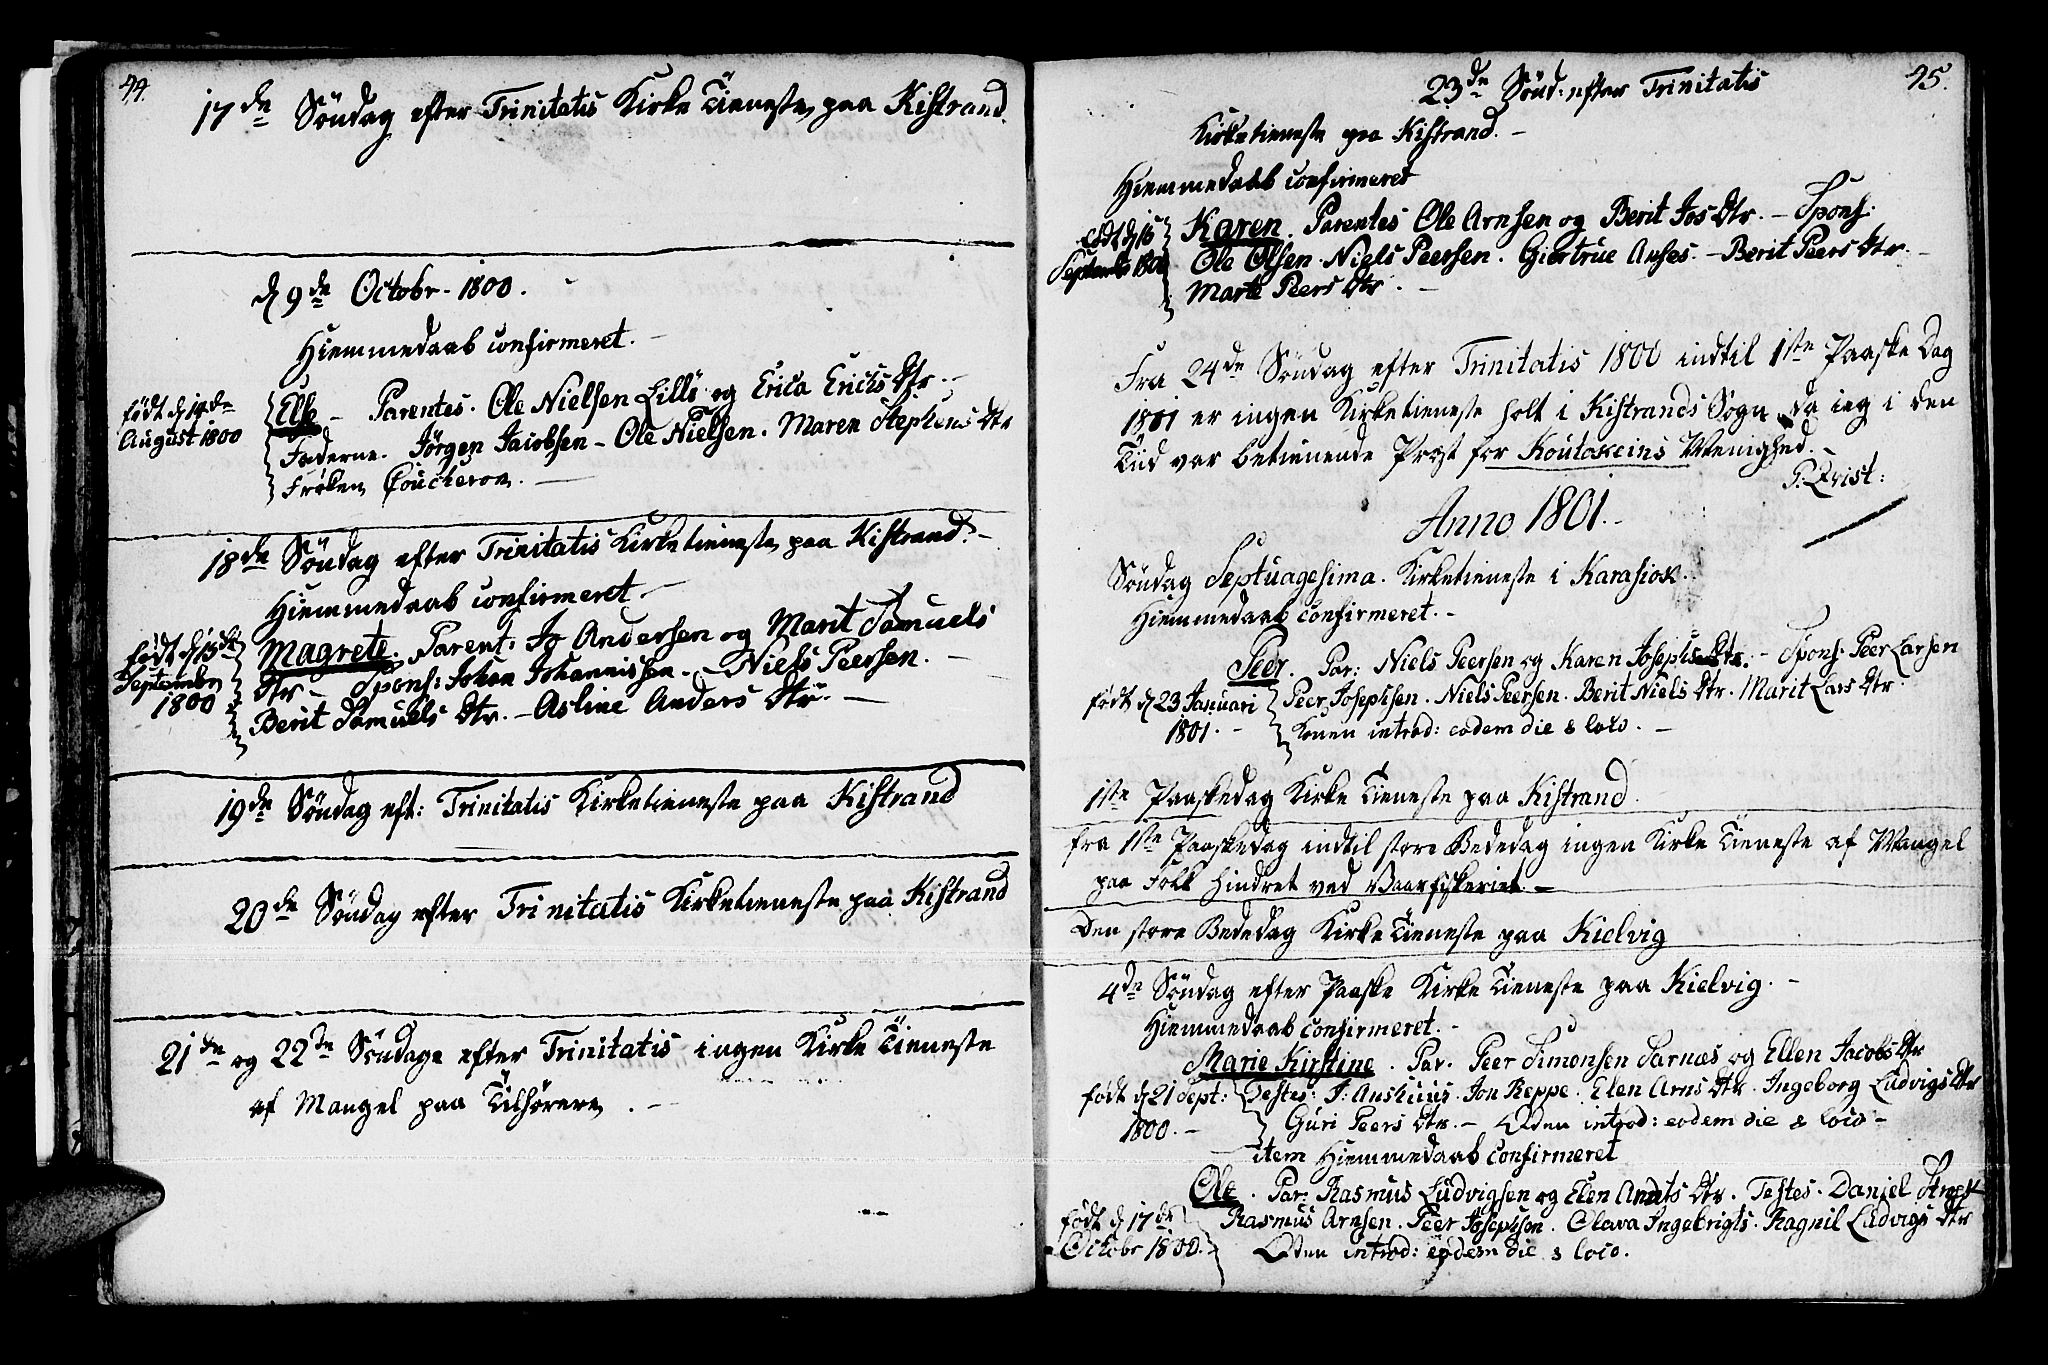 44.
17de Söndag efter Trinitatis Kirke Tieneste paa Kistrand.
d 9de Octobr. 1800.
Hiemmedaab confirmeret.
født d 14de
August 1800
Else - Parentes. Ole Nielsen Lillö og Erica Erichs Dtr. -
Fadderne. Jörgen Jacobsen - Ole Nielsen. Maren Stephens Dtr
Frøken Coucheron. -
18de Söndag efter Trinitatis Kirketieneste paa Kistrand. -
Hiemmedaab confirmeret. -
født d 15de
Septembr
1800
Magrete. Parent: Jo Andersen og Marit Samuels
Dtr - Spons: Johan Johannissen. - Niels Peersen. -
Berit Samuels Dtr. - Asline Anders Dtr. -
19de Söndag eft: Trinitatis Kirketieneste paa Kistrand
20de Söndag efter Trinitatis Kirketieneste paa Kistrand
21de og 22de Söndage efter Trinitatis ingen Kirke Tieneste
af Mangel paa Tilhørere. -
45.
23de Sönd: efter Trinitatis
Kirketieneste paa Kistrand. -
Hiemmedaab confirmeret
født d 16
Septembr 1800
Karen. Parentes Ole Arnsen og Berit Jos Dtr. - Spons:
Ole Olsen. Niels Peersen. Giertrue - Berit Peers Dtr. -
Marte Peers Dtr. -
Fra 24de Söndag efter Trinitatis 1800 indtil 1ste Paaske Dag
1801 er ingen Kirketieneste holt i Kistrands Sogn da ieg i den
Tiid var betienende Præst for Koutokeins Menighed. -
P. Qvist:
Anno 1801. -
Söndag Septuagesima. Kirketieneste i Karasiok.
Hiemmedaab confirmeret. -
Peer. Par: Niels Peersen og Karen Josephs Dtr. - Spons: Peer Larsen
født d 23 Januari
1801. -
Peer Josephsen. Niels Peersen. Berit Niels Dtr. Marit Lars Dtr.
Konen introd: eodem die & loco. -
1ste Paaskedag Kirke Tieneste paa Kistrand.
fra 1ste Paaskedag indtil store Bededag ingen Kirke Tieneste af Mangel
paa Folk hindret ved Vaarfiskeriet. -
Den store Bededag Kirke Tieneste paa Kielvig
4de Söndag efter Paaske Kirke Tieneste paa Kielvig. -
Hiemmedaab confirmeret. -
Marie Kirstine. Par. Peer Simonsen Sarnæs og Ellen Jacobs Dtr
født d 21 Sept:
1800. -
Testes: J: Jon Reppe. Elen Arns Dtr. Ingeborg Ludvigs Dtr
Guri Peers Dtr. - introd: eodem die & loco -
item Hiemmedaab confirmeret
Ole. Par: Rasmus Ludvigsen og Elen Dtr. Testes. Daniel
født d 17de
Octobr 1800. -
Rasmus Arnsen. Peer Josephsen. Olava Ingebrigts. Ragnil Ludvigs Dtr
introd: eodem die & loco.